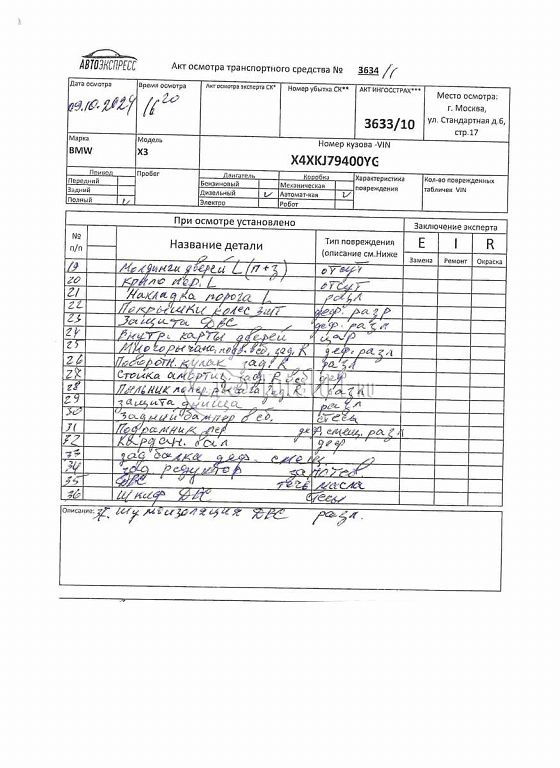 АВТОЭКСПРЕСС
Акт осмотра транспортного средства № 3634/1
Дата осмотра
09.10.2024
Время осмотра
16 20
Акт осмотра эксперта СК*
Номер убытка СК**
АКТ ИНГОССТРАХ***
3633/10
Место осмотра:
г. Москва,
ул. Стандартная д.6,
стр.17
Марка
BMW
Модель
X3
Номер кузова -VIN
X4XKJ79400YG
Привод
Передний
Задний
Полный V
Пробег
Двигатель
Бензиновый
Дизельный V
Электро
Коробка
Механическая
Автомат-кая V
Робот
Характеристика
повреждения
Кол-во поврежденных
табличек VIN
№
п/п
При осмотре установлено
Название детали
Тип повреждения
(описание см.Ниже
Заключение эксперта
E I R
Замена Ремонт Окраска
19 Молдинги дверей L (п+з) отсут
20 крыло пер. L отсут
21 Накладка порога L разл
22 Покрышки колес 3шт деф. разр
23 Защита ДВС деф. разл
24 Внутр. карты дверей цар
25 Многорычажн. подв. в сб. зад. R деф. разл
26 Поворотн. кулак зад. R разл
27 Стойка амортиз. зад. R в сб деф
28 Пыльник попер. рычага зад R разл
29 защита днища разл
30 Задний бампер в сб.
31 Подрамник пер деф смещ. разл
32 Кардан. вал деф
33 зад балка деф. смещ
34 зад редуктор запотев.
35 ДВС течь масла
36 Шкиф ДВС
Описание: 37. Шумоизоляция ДВС разл.